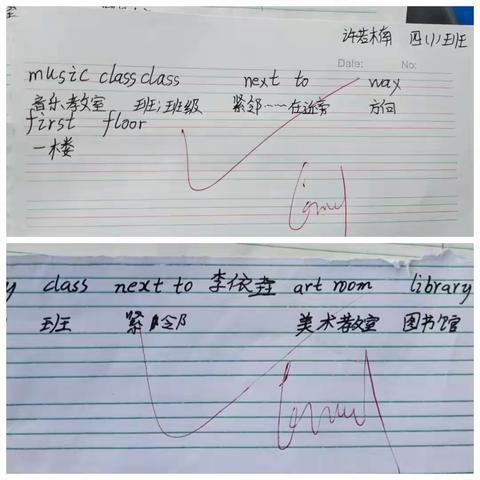 许若楠 四(1)班
Date: No:
music class class next to way
音乐教室 班;班级 紧邻……在近旁 方向
first floor
一楼
Good
y class next to 李依垚 art room library
班 紧邻 美术教室 图书馆
Good